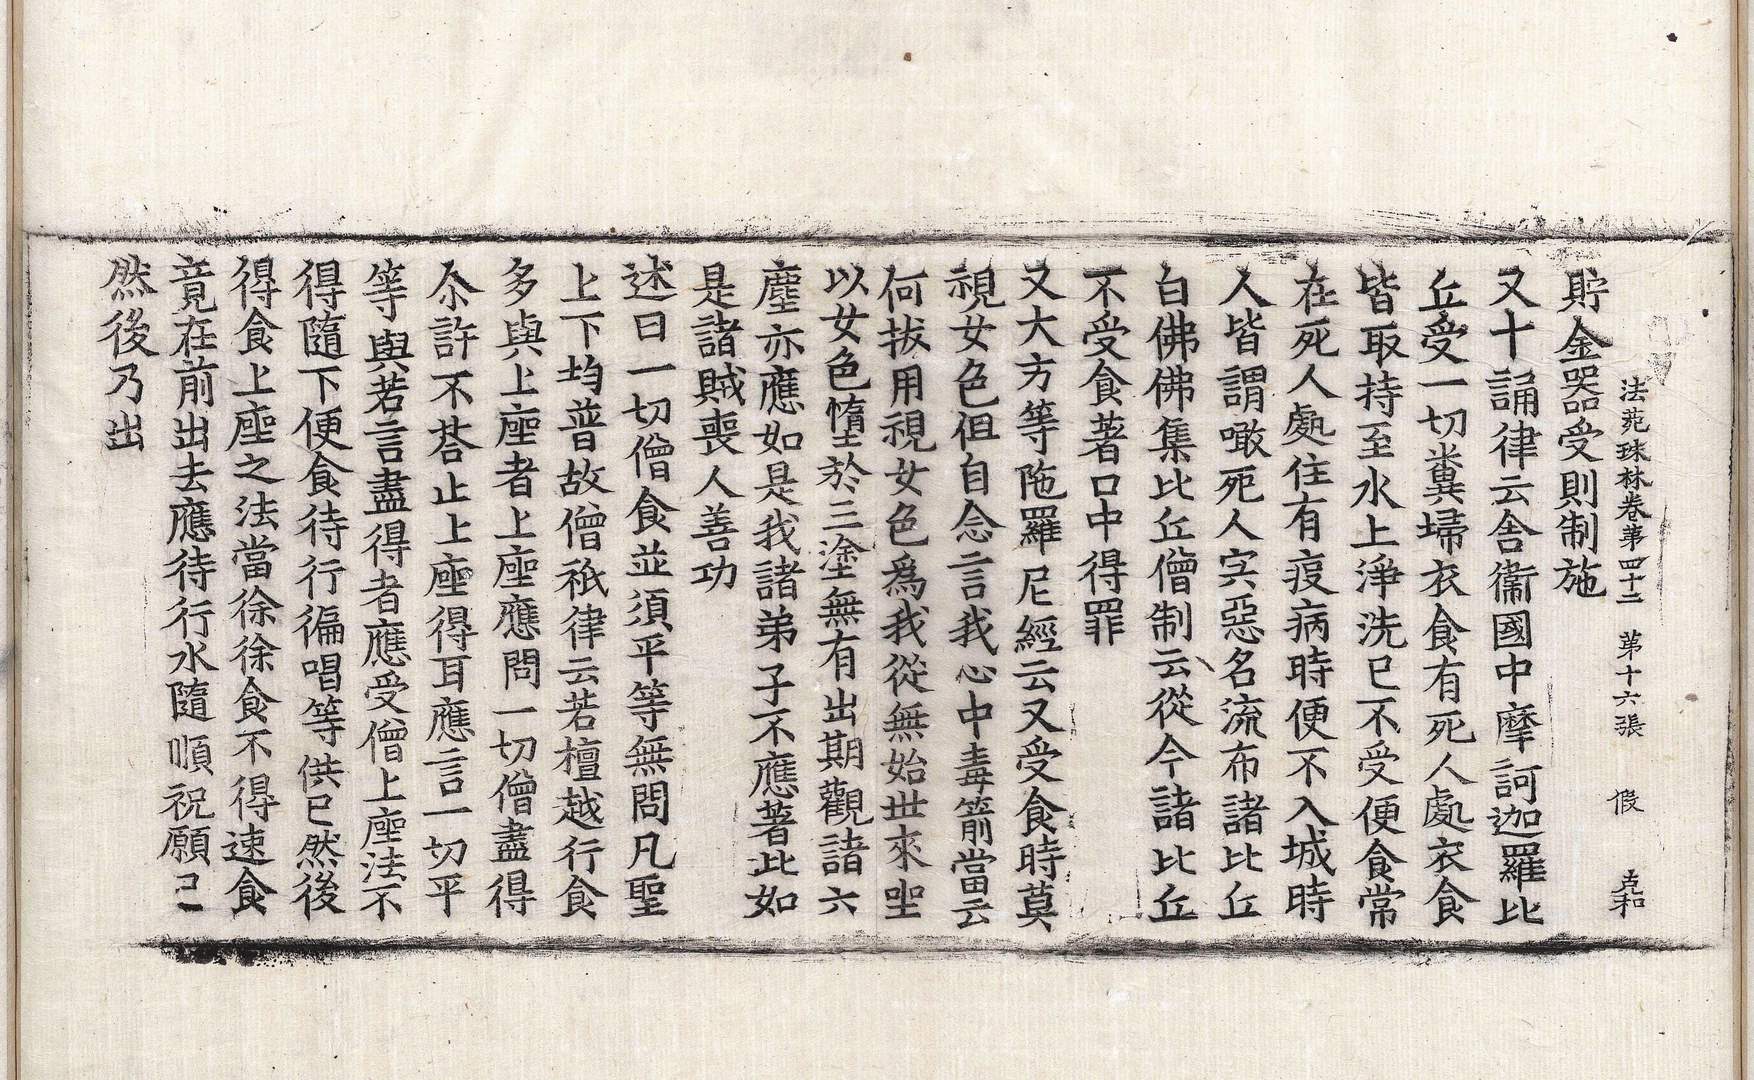 法苑珠林卷第四十二　第十六張　假　克和
貯金器受則制施
又十誦律云舍衛國中摩訶迦羅比
丘受一切糞埽衣食有死人處衣食
皆取持至水上淨洗已不受便食常
在死人處住有疫病時便不入城時
人皆謂噉死人宍惡名流布諸比丘
白佛佛集比丘僧制云從今諸比丘
不受食著口中得罪
又大方等陁羅尼經云又受食時莫
視女色但自念言我心中毒箭當云
何拔用視女色爲我從無始世來坐
以女色憜於三塗無有出期觀諸六
塵亦應如是我諸弟子不應著此如
是諸賊喪人善功
述曰一切僧食並須平等無問凡聖
上下均普故僧祇律云若檀越行食
多與上座者上座應問一切僧盡得
尒許不荅止上座得耳應言一切平
等與若言盡得者應受僧上座法不
得隨下便食待行徧唱等供已然後
得食上座之法當徐徐食不得速食
竟在前出去應待行水隨順祝願已
然後乃出